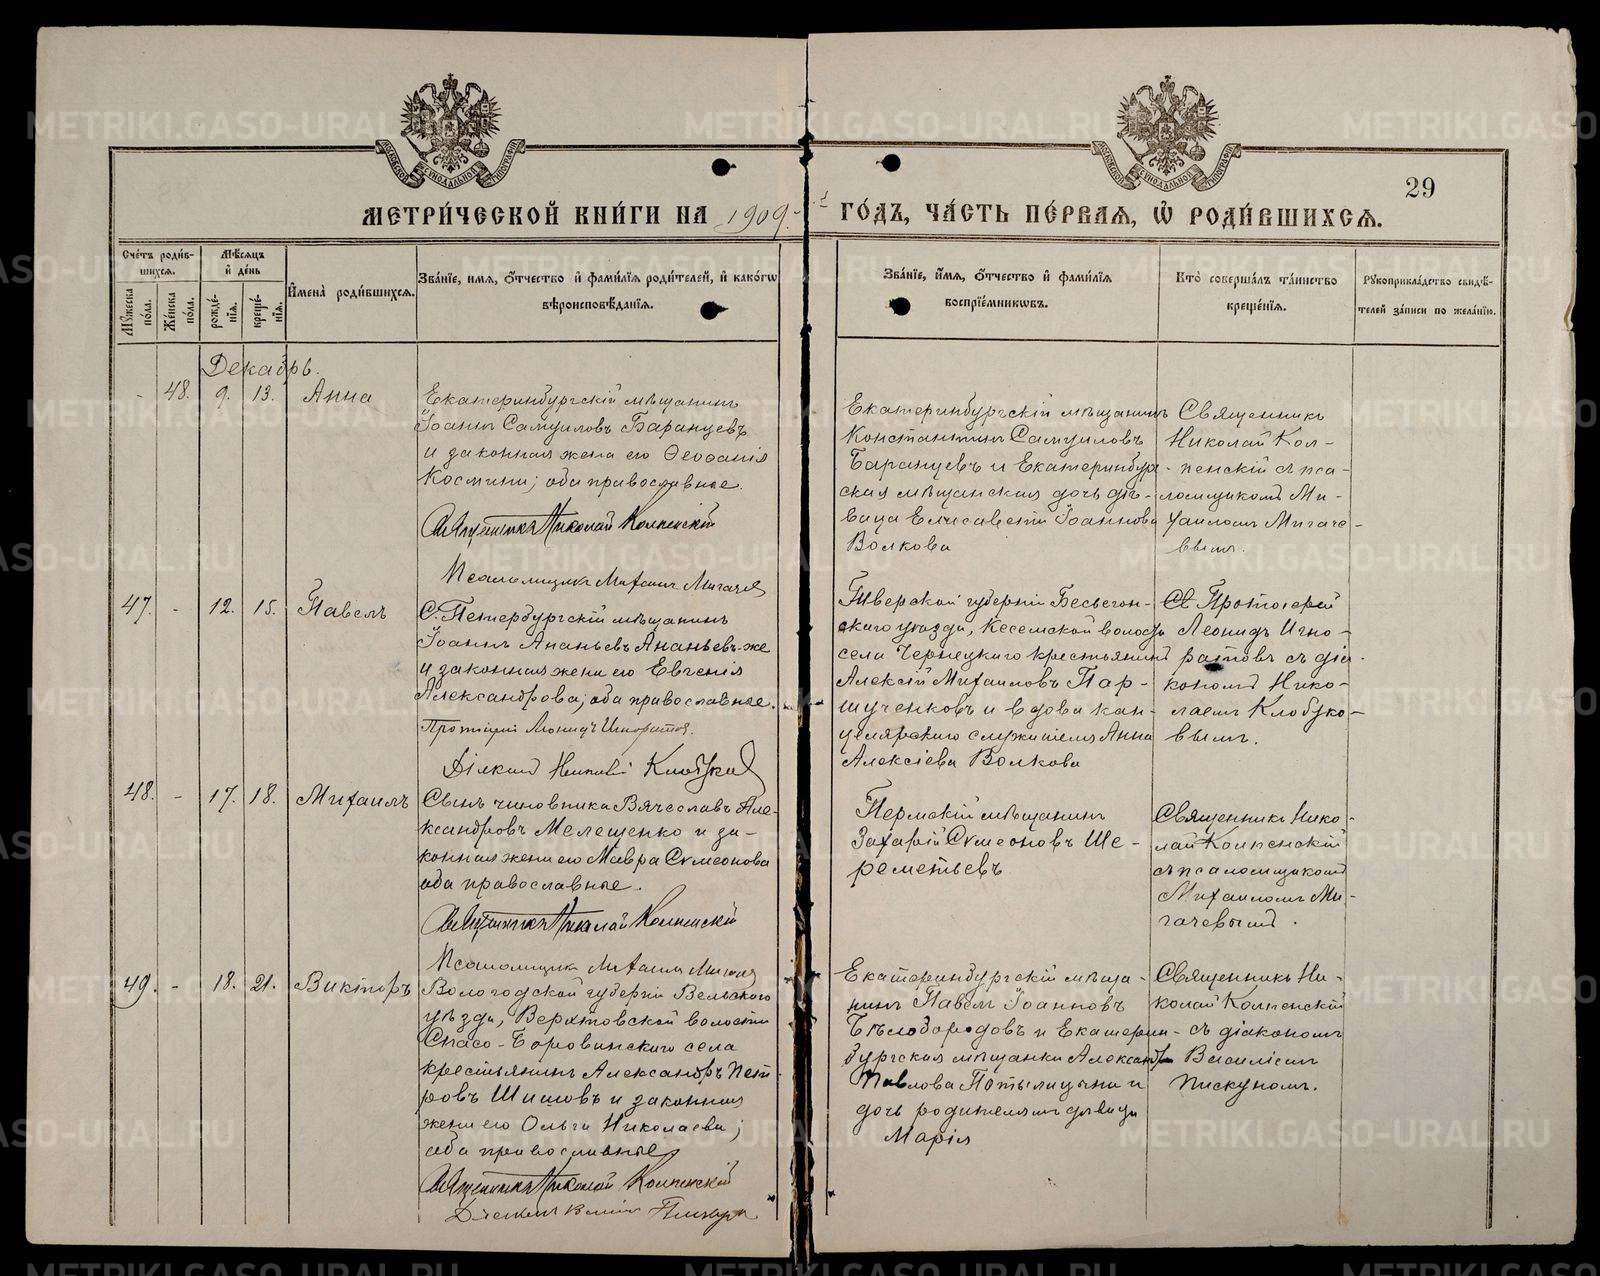 МЕТРИ́ЧЕСКОЙ КНИ́ГИ НА 1909.
ГО́ДЪ, ЧА́СТЬ ПЕ́РВАѦ, Ѡ҆ РОДИ́ВШИХСѦ.
29
Сче́тъ роди́в-
шихсѧ.
Мꙋ́жеска по́ла.
Же́нска по́ла.
Мѣ́сѧцъ
и҆ де́нь
рожде́-
нїѧ.
креще́-
нїѧ.
И҆мена̀ роди́вшихсѧ.
Зва́нїе, и҆мѧ, ѻ҆́тчество и҆ фами́лїѧ роди́телей, и҆ како́гѡ
вѣроисповѣ́данїѧ.
Зва́нїе, и҆́мѧ, ѻ҆́тчество и҆ фами́лїѧ
воспрїе́мникѡвъ.
Кто̀ соверша́лъ та́инство
креще́нїѧ.
Рꙋкоприкла́дство свидѣ́-
телей за́писи по жела́нїю.
Декабрь.
- 48. 9. 13. Анна
Екатеринбургскій мѣщанинъ
Іоаннъ Самуиловъ Баранцевъ
и законная жена его Ѳеофанія
Космина; оба православные.
Священникъ Николай Колпенскій
Псаломщикъ Михаилъ Мигачев
Екатеринбургскій мѣщанинъ
Константинъ Самуиловъ
Баранцевъ и Екатеринбург-
ская мѣщанская дочь дѣ-
вица Елисавета Іоаннова
Волкова
Священникъ
Николай Кол-
пенскій съ пса-
ломщикомъ Ми-
хаиломъ Мигаче-
вымъ.
47. - 12. 15. Павелъ
С. Петербургскій мѣщанинъ
Іоаннъ Ананьевъ Ананьевъ-же
и законная жена его Евгенія
Александрова; оба православные.
Протоіерей Леонидъ Игноратов.
Діаконъ Николай Клобуков
Тверской губерніи Бесьегон-
скаго уѣзда, Кесемской волости
села Чернецкаго крестьянинъ
Алексій Михаиловъ Пар-
шученковъ и вдова кан-
целярскаго служителя Анна
Алексіева Волкова
Протоіерей
Леонидъ Игно-
ратовъ съ діа-
кономъ Нико-
лаемъ Клобуко-
вымъ.
48. - 17. 18. Михаилъ
Сынъ чиновника Вячеславъ Але-
ксандровъ Мелещенко и за-
конная жена его Мавра Сумеонова
оба православные.
Священникъ Николай Колпенскій
Псаломщикъ Михаилъ Мигачев
Пермскій мѣщанинъ
Захарій Сумеоновъ Ше-
реметьевъ
Священникъ Нико-
лай Колпенскій
съ псаломщикомъ
Михаиломъ Ми-
гачевымъ.
49. - 18. 21. Викторъ
Вологодской губерніи Вельскаго
уѣзда, Верховской волости
Спасо-Боровинскаго села
крестьянинъ Александръ Пет-
ровъ Шиловъ и законная
жена его Ольга Николаева;
оба православные
Священникъ Николай Колпенскій
Діаконъ Василій Пискун
Екатеринбургскій мѣща-
нинъ Павелъ Іоанновъ
Бѣлобородовъ и Екатерин-
бургская мѣщанка Александра
Павлова Потылицына и
дочь родителямъ дѣвица
Марія
Священникъ Ни-
колай Колпенскій
съ діакономъ
Василіемъ
Пискуномъ.
METRIKI.GASO-URAL.RU